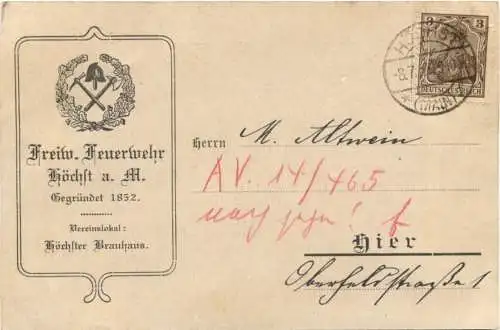 Freiw. Feuerwehr
Höchst a. M.
Gegründet 1852.
Vereinslokal:
Höchster Brauhaus.
3 3
DEUTSCHES REICH
HÖCHST
(MAIN)
Herrn M. Altwein
AV. 14/465
Hier
Oberfeldstraße 1